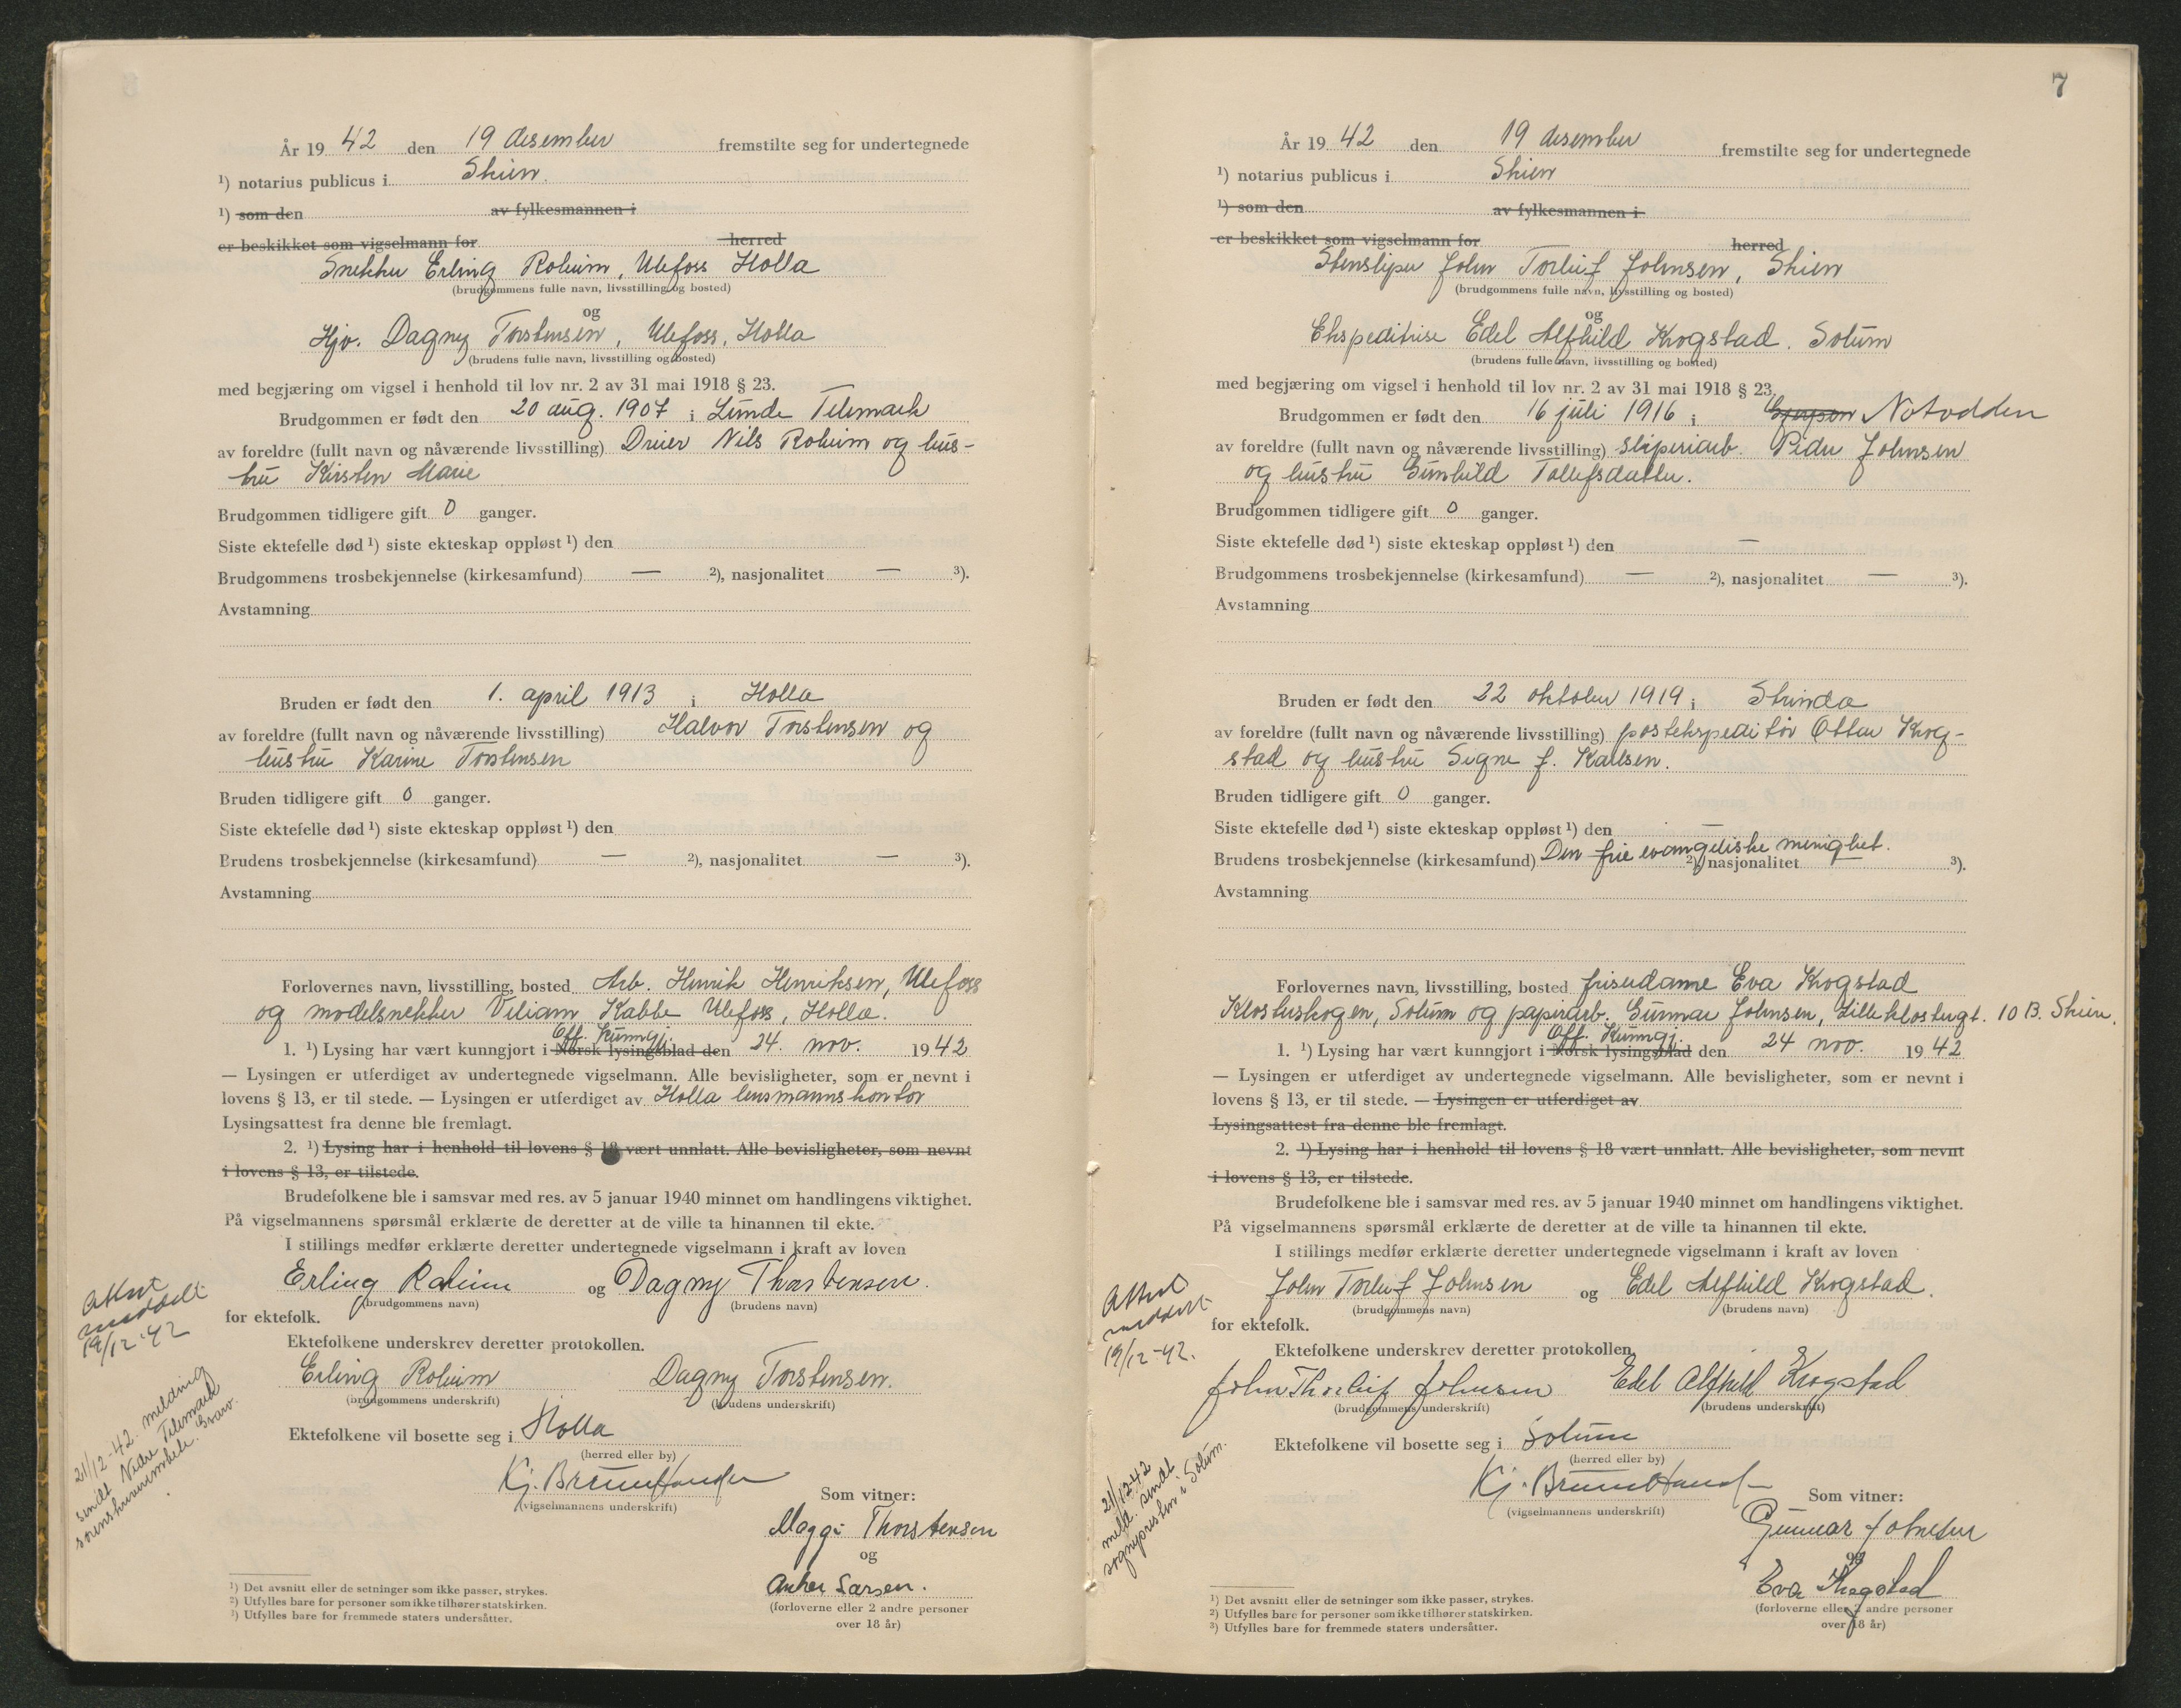 År 19 42 den 19 desember fremstilte seg for undertegnede
¹) notarius publicus i Skien.
¹) som den av fylkesmannen i
er beskikket som vigselmann for herred
Snekker Erling Roheim, Ulefoss Holla
(brudgommens fulle navn, livsstilling og bosted)
og
Hjv. Dagny Torstensen, Ulefoss, Holla
(brudens fulle navn, livsstilling og bosted)
med begjæring om vigsel i henhold til lov nr. 2 av 31 mai 1918 § 23.
Brudgommen er født den 20 aug. 1907 i Lunde Telemark
av foreldre (fullt navn og nåværende livsstilling) Dreier Nils Roheim og hus-
tru Kirsten Marie
Brudgommen tidligere gift 0 ganger.
Siste ektefelle død ¹) siste ekteskap oppløst ¹) den
Brudgommens trosbekjennelse (kirkesamfund) — ²), nasjonalitet — ³).
Avstamning
Bruden er født den 1. april 1913 i Holla
av foreldre (fullt navn og nåværende livsstilling) Halvor Torstensen og
hustru Karine Torstensen
Bruden tidligere gift 0 ganger.
Siste ektefelle død ¹) siste ekteskap oppløst ¹) den
Brudens trosbekjennelse (kirkesamfund) — ²), nasjonalitet — ³).
Avstamning
Forlovernes navn, livsstilling, bosted Arb. Henrik Henriksen, Ulefoss
og modelsnekker Viliam Kabbe Ulefoss, Holla.
Off. Kunngj.
1. ¹) Lysing har vært kunngjort i Norsk lysingsblad den 24. nov. 1942
— Lysingen er utferdiget av undertegnede vigselmann. Alle bevisligheter, som er nevnt i
lovens § 13, er til stede. — Lysingen er utferdiget av Holla lensmannskontor
Lysingsattest fra denne ble fremlagt.
2. ¹) Lysing har i henhold til lovens § 18 vært unnlatt. Alle bevisligheter, som nevnt
i lovens § 13, er tilstede.
Brudefolkene ble i samsvar med res. av 5 januar 1940 minnet om handlingens viktighet.
På vigselmannens spørsmål erklærte de deretter at de ville ta hinannen til ekte.
I stillings medfør erklærte deretter undertegnede vigselmann i kraft av loven
Erling Roheim og Dagny Thorstensen.
(brudgommens navn) (brudens navn)
for ektefolk.
Attest
meddelt
19/12-42
Ektefolkene underskrev deretter protokollen.
Erling Roheim Dagny Torstensen.
(brudgommens underskrift) (brudens underskrift)
Ektefolkene vil bosette seg i Holla
(herred eller by)
21/12-42. melding
sendt Nedre Telemark
sorenskriverembete.
(vigselmannens underskrift)
Som vitner:
Maggi Thorstensen
og
Anker Larsen.
(forloverne eller 2 andre personer
over 18 år)
¹) Det avsnitt eller de setninger som ikke passer, strykes.
²) Utfylles bare for personer som ikke tilhører statskirken.
³) Utfylles bare for fremmede staters undersåtter.
7
År 19 42 den 19 desember fremstilte seg for undertegnede
¹) notarius publicus i Skien
¹) som den av fylkesmannen i
er beskikket som vigselmann for herred
Stensliper John Torleif Johnsen, Skien
(brudgommens fulle navn, livsstilling og bosted)
og
Ekspeditrise Edel Alfhild Krogstad. Solum
(brudens fulle navn, livsstilling og bosted)
med begjæring om vigsel i henhold til lov nr. 2 av 31 mai 1918 § 23.
Brudgommen er født den 16 juli 1916 i Gjerpen Notodden
av foreldre (fullt navn og nåværende livsstilling) sliperiarb. Peder Johnsen
og hustru Gunhild Tollefsdatter.
Brudgommen tidligere gift 0 ganger.
Siste ektefelle død ¹) siste ekteskap oppløst ¹) den —
Brudgommens trosbekjennelse (kirkesamfund) — ²), nasjonalitet — ³).
Avstamning
Bruden er født den 22 oktober 1919 i Strinda
av foreldre (fullt navn og nåværende livsstilling) postekspeditør Ottar Krog-
stad og hustru Signe f. Karlsen.
Bruden tidligere gift 0 ganger.
Siste ektefelle død ¹) siste ekteskap oppløst ¹) den —
Brudens trosbekjennelse (kirkesamfund) Den frie evangeliske menighet. ²), nasjonalitet ³).
Avstamning
Forlovernes navn, livsstilling, bosted friserdame Eva Krogstad
Klosterskogen, Solum og papirarb. Gunnar Johnsen, Lilleklostergt. 10 B. Skien.
Off. Kunngj.
1. ¹) Lysing har vært kunngjort i Norsk lysingsblad den 24 nov. 1942
— Lysingen er utferdiget av undertegnede vigselmann. Alle bevisligheter, som er nevnt i
lovens § 13, er til stede. — Lysingen er utferdiget av
Lysingsattest fra denne ble fremlagt.
2. ¹) Lysing har i henhold til lovens § 18 vært unnlatt. Alle bevisligheter, som nevnt
i lovens § 13, er tilstede.
Brudefolkene ble i samsvar med res. av 5 januar 1940 minnet om handlingens viktighet.
På vigselmannens spørsmål erklærte de deretter at de ville ta hinannen til ekte.
I stillings medfør erklærte deretter undertegnede vigselmann i kraft av loven
John Torleif Johnsen og Edel Alfhild Krogstad.
(brudgommens navn) (brudens navn)
for ektefolk.
Attest
meddelt
19/12-42.
Ektefolkene underskrev deretter protokollen.
John Thorleif Johnsen Edel Alfhild Krogstad
(brudgommens underskrift) (brudens underskrift)
Ektefolkene vil bosette seg i Solum
(herred eller by)
21/12-42
meld. sendt
sognepresten i Solum.
(vigselmannens underskrift)
Som vitner:
Gunnar Johnsen
og
Eva Krogstad
(forloverne eller 2 andre personer
over 18 år)
¹) Det avsnitt eller de setninger som ikke passer, strykes.
²) Utfylles bare for personer som ikke tilhører statskirken.
³) Utfylles bare for fremmede staters undersåtter.